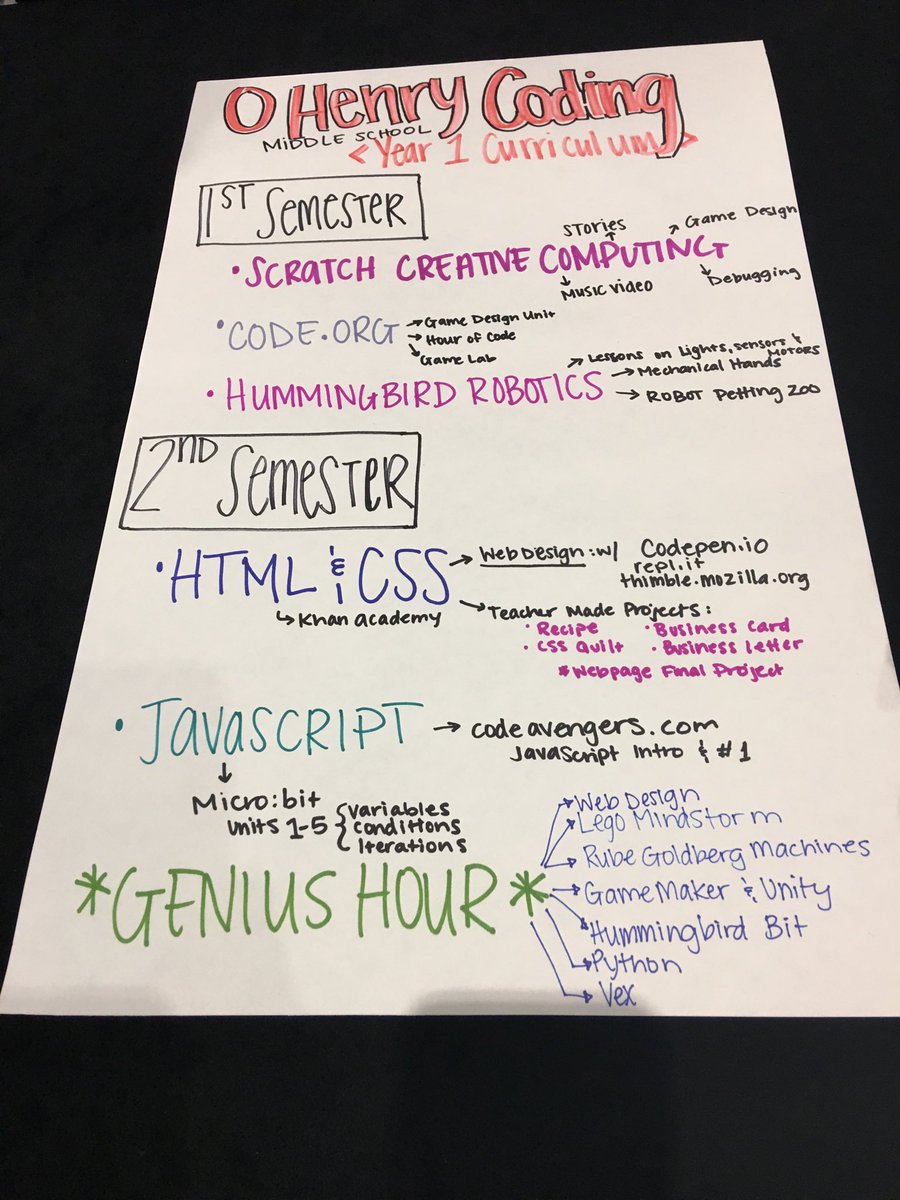 O Henry Coding
MIDDLE SCHOOL
<Year 1 Curriculum>
1ST SEMESTER
• SCRATCH CREATIVE COMPUTING
Stories
Game Design
Music video
Debugging
• CODE.ORG
Game Design Unit
Hour of Code
Game Lab
• HUMMINGBIRD ROBOTICS
Lessons on Lights, sensors & MOTORS
Mechanical Hands
ROBOT Petting ZOO
2ND SEMESTER
• HTML & CSS
Web Design: w/ Codepen.io
repl.it
thimble.mozilla.org
Khan academy
Teacher Made Projects:
• Recipe • Business Card
• CSS Quilt • Business letter
*Webpage Final Project
• JavaSCRIPT → codeavengers.com
JavaScript Intro & #1
Micro:bit
units 1-5 { variables
conditions
iterations
*GENIUS HOUR*
Web Design
Lego Mindstorm
Rube Goldberg Machines
GameMaker & Unity
Hummingbird Bit
Python
Vex